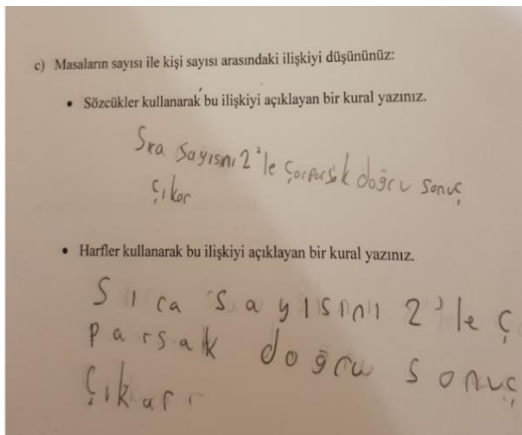 c) Masaların sayısı ile kişi sayısı arasındaki ilişkiyi düşününüz:
• Sözcükler kullanarak bu ilişkiyi açıklayan bir kural yazınız.
Sıra sayısnı 2'le çarparsak doğru sonuç
çıkar
• Harfler kullanarak bu ilişkiyi açıklayan bir kural yazınız.
Sıca sayısını 2'le ç
parsak doğru sonuç
çıkarr